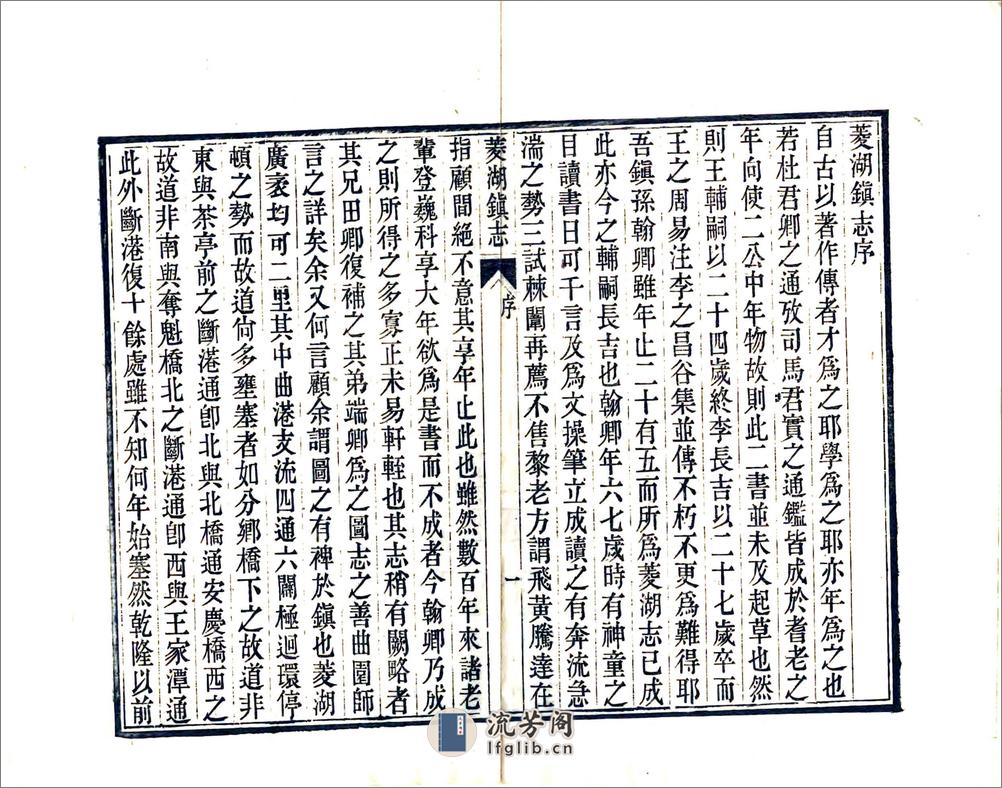 菱湖鎭志序
自古以著作傳者才爲之耶學爲之耶亦年爲之也
若杜君卿之通攷司馬君實之通鑑皆成於耆老之
年向使二公中年物故則此二書並未及起草也然
則王輔嗣以二十四歲終李長吉以二十七歲卒而
王之周易注李之昌谷集並傳不朽不更爲難得耶
吾鎭孫翰卿雖年止二十有五而所爲菱湖志已成
此亦今之輔嗣長吉也翰卿年六七歲時有神童之
目讀書日可千言及爲文操筆立成讀之有奔流急
湍之勢三試棘闈再薦不售黎老方謂飛黃騰達在
菱湖鎭志
序
一
指顧間絕不意其享年止此也雖然數百年來諸老
輩登巍科享大年欲爲是書而不成者今翰卿乃成
之則所得之多寡正未易軒輊也其志稍有闕略者
其兄田卿復補之其弟端卿爲之圖志之善曲園師
言之詳矣余又何言顧余謂圖之有裨於鎭也菱湖
廣袤均可二里其中曲港支流四通六闢極迴環停
頓之勢而故道尙多壅塞者如分鄕橋下之故道非
東與茶亭前之斷港通卽北與北橋通安慶橋西之
故道非南與奪魁橋北之斷港通卽西與王家潭通
此外斷港復十餘處雖不知何年始塞然乾隆以前
流芳閣
lfglib.cn